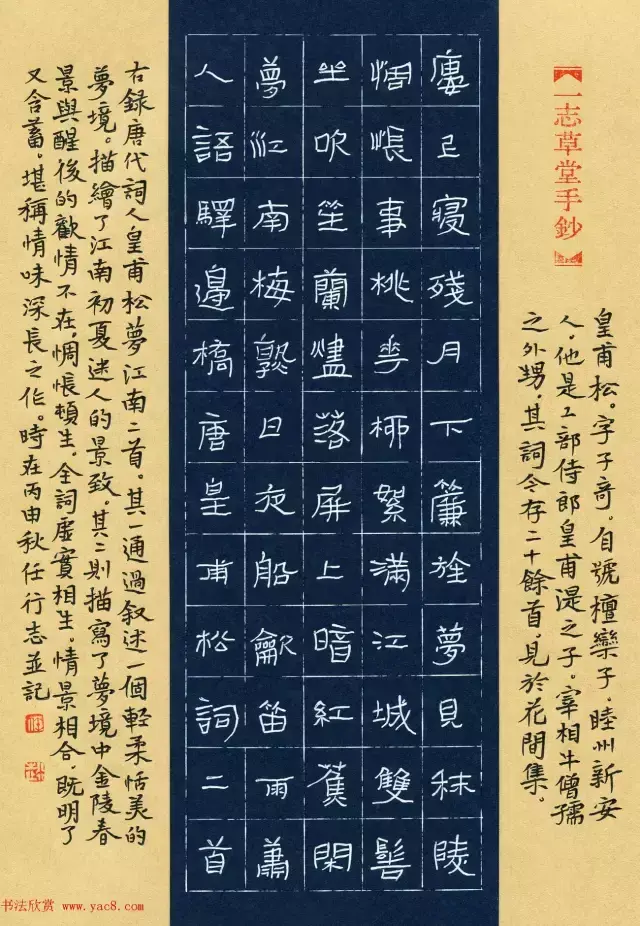 一志草堂手鈔
皇甫松。字子奇。自號檀欒子，睦州新安
人。他是工部侍郎皇甫湜之子。宰相牛僧孺
之外甥，其詞今存二十餘首，見於花間集。
廔上寢殘月下簾旌夢見秣陵
惆悵事桃花柳絮滿江城雙髻
坐吹笙蘭燼落屏上暗紅蕉閑
夢江南梅熟日夜船龡笛雨蕭
人語驛邊橋唐皇甫松詞二首
右錄唐代詞人皇甫松夢江南二首。其一通過叙述一個輕柔恬美的
夢境。描繪了江南初夏迷人的景致，其二則描寫了夢境中金陵春
景與醒後的歡情不在，惆悵頓生。全詞虛實相生。情景相合，既明了
又含蓄。堪稱情味深長之作。時在丙申秋任行志並記
书法欣赏 www.yac8.com